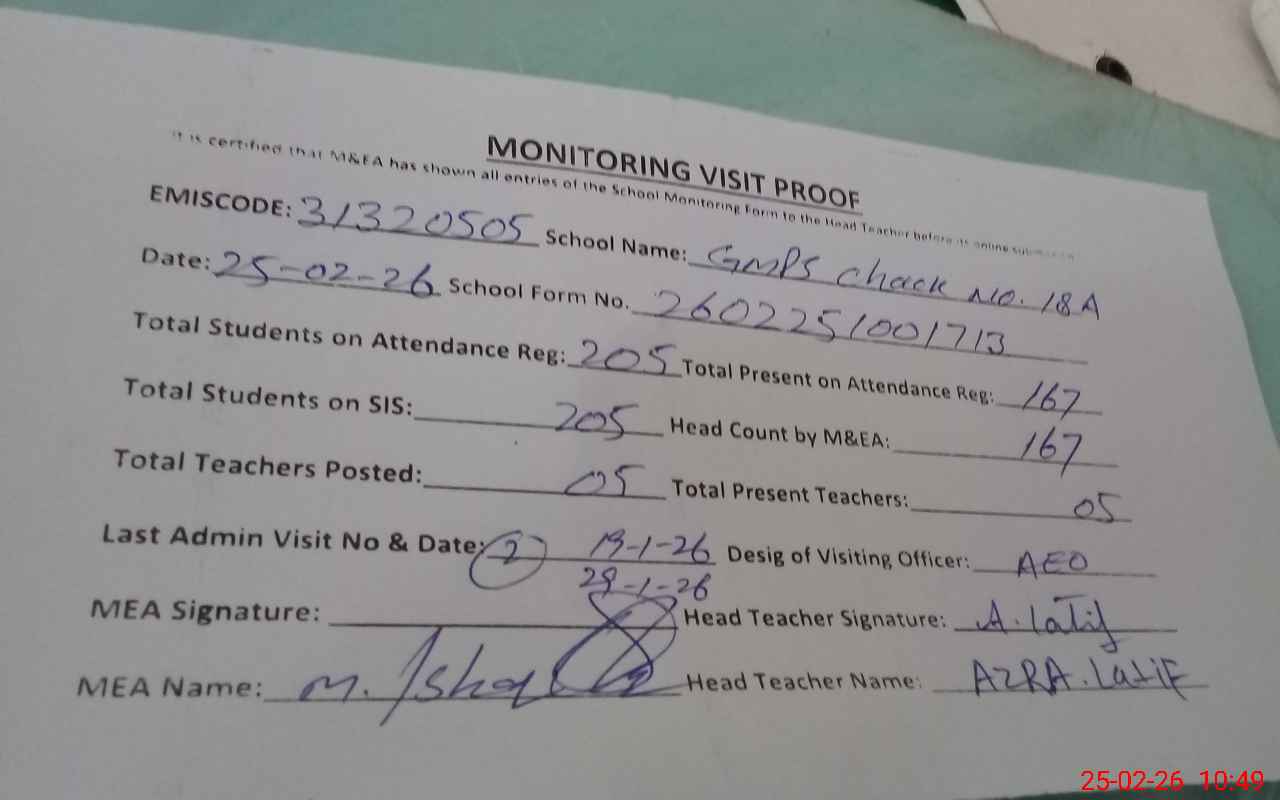 MONITORING VISIT PROOF
It is certified that M&EA has shown all entries of the School Monitoring Form to the Head Teacher before its online submission
EMISCODE: 31320505 School Name: GMPS Chack No. 18A
Date: 25-02-26 School Form No. 2602251001713
Total Students on Attendance Reg: 205 Total Present on Attendance Reg: 167
Total Students on SIS: 205 Head Count by M&EA: 167
Total Teachers Posted: 05 Total Present Teachers: 05
Last Admin Visit No & Date: 2 19-1-26 Desig of Visiting Officer: AEO
29-1-26
MEA Signature: Head Teacher Signature: A.Latif
MEA Name: M. Ishaq Head Teacher Name: AZRA.LatiF
25-02-26 10:49